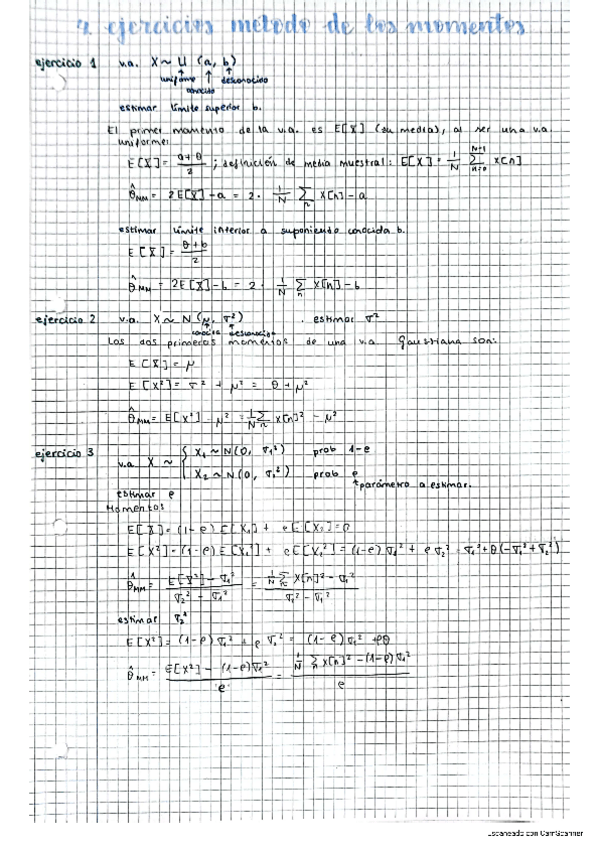 2. ejercicios método de los momentos
ejercicio 1 v.a. X ~ U (a, b)
uniforme conocido desconocido
estimar límite superior b.
El primer momento de la v.a. es E[X] (su media), al ser una v.a.
uniforme:
E[X] = (a+θ)/2 ; definición de media muestral: E[X] = 1/N Σ_{n=0}^{N-1} x[n]
θ̂_MM = 2E[X] - a = 2 · 1/N Σ_n x[n] - a
estimar límite inferior a suponiendo conocida b.
E[X] = (θ+b)/2
θ̂_MM = 2E[X] - b = 2 · 1/N Σ_n x[n] - b
ejercicio 2 v.a. X ~ N(μ, σ²) . estimar σ²
conocida desconocida
Los dos primeros momentos de una v.a. gaussiana son:
E[X] = μ
E[X²] = σ² + μ² = θ + μ²
θ̂_MM = E[X²] - μ² = 1/N Σ_n x[n]² - μ²
ejercicio 3 v.a. X ~ { X₁ ~ N(0, σ₁²) prob 1-e
X₂ ~ N(0, σ₂²) prob e
parámetro a estimar.
estimar e
Momentos
E[X] = (1-e) E[X₁] + e E[X₂] = 0
E[X²] = (1-e) E[X₁²] + e E[X₂²] = (1-e) σ₁² + e σ₂² = σ₁² + θ(-σ₁² + σ₂²)
θ̂_MM = (E[X²] - σ₁²)/(σ₂² - σ₁²) = (1/N Σ_n x[n]² - σ₁²)/(σ₂² - σ₁²)
estimar σ₂²
E[X²] = (1-e) σ₁² + e σ₂² = (1-e) σ₁² + eθ
θ̂_MM = (E[X²] - (1-e) σ₁²)/e = (1/N Σ_n x[n]² - (1-e) σ₁²)/e
Escaneado con CamScanner